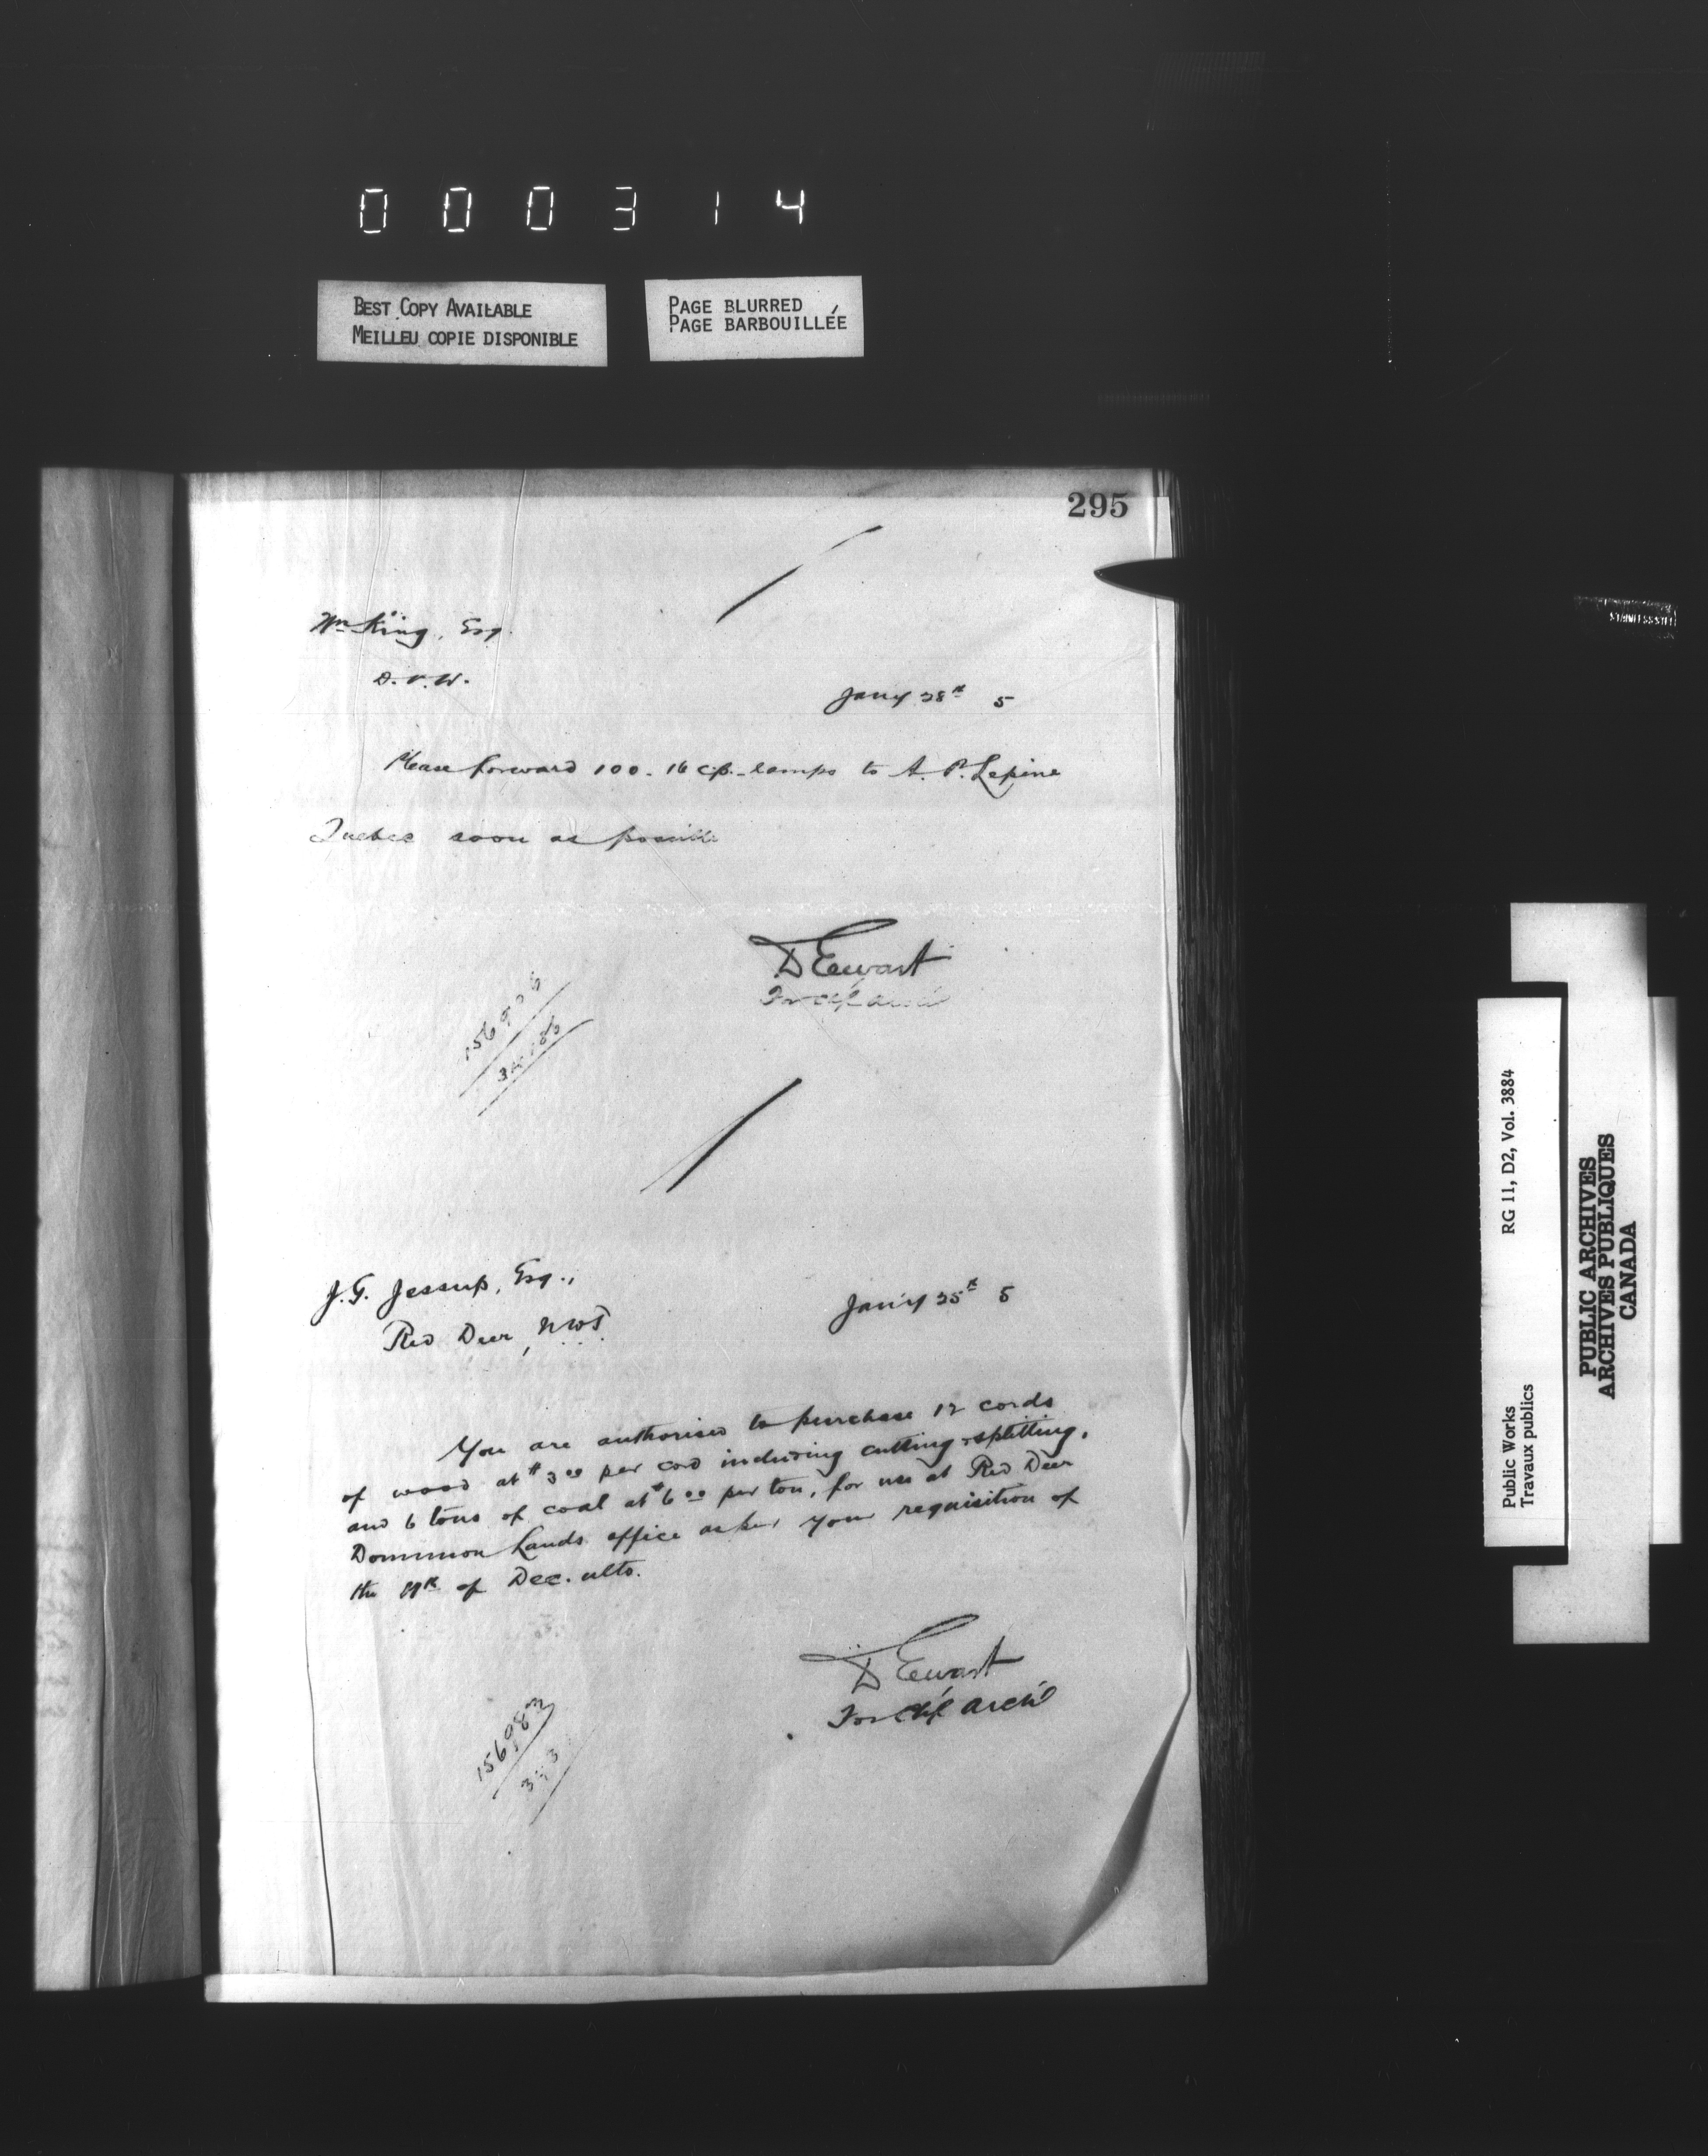 000314
BEST COPY AVAILABLE
MEILLEU COPIE DISPONIBLE
PAGE BLURRED
PAGE BARBOUILLÉE
295
Wm King, Esq.
D.P.W.
Jany 28th 5
Please forward 100 - 16 c.p. lamps to A. P. Lepine
Quebec soon as possible
D Ewart
For Chf Archt
J. G. Jessup, Esq.,
Red Deer, NWT
Jany 25th 5
You are authorised to purchase 12 cords
of wood at $3 00 per cord including cutting & splitting,
and 6 tons of coal at $6 00 per ton, for use at Red Deer
Dominion Lands office as per your requisition of
the 19th of Dec. ulto.
D Ewart
For Chf Archt
156983
343
RG 11, D2, Vol. 3884
Public Works
Travaux publics
PUBLIC ARCHIVES
ARCHIVES PUBLIQUES
CANADA